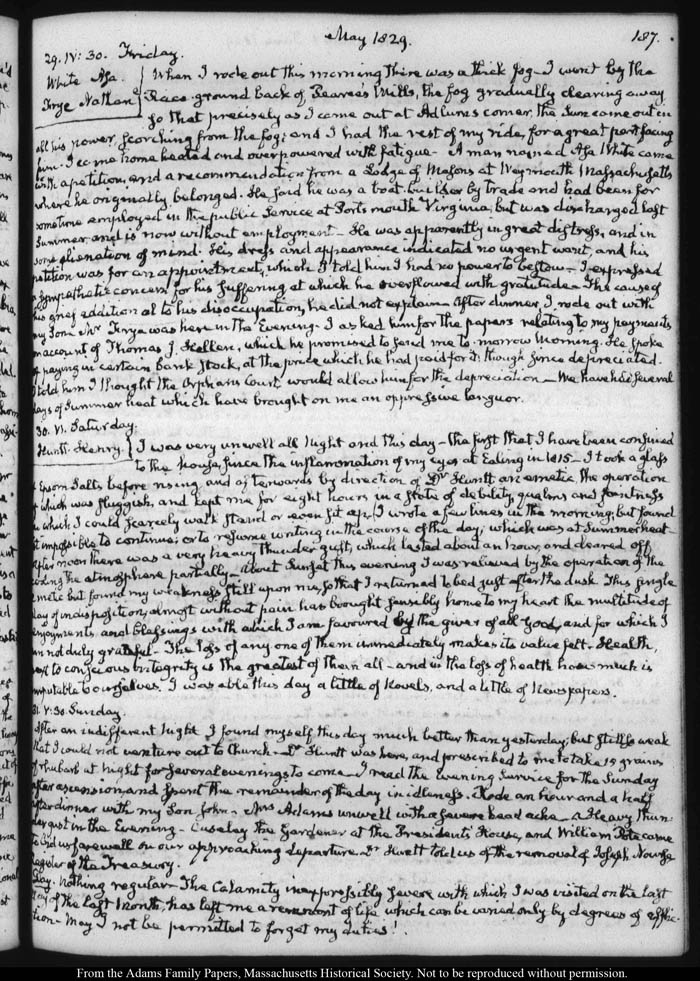 May 1829.
187.
29. IV: 30. Friday.
White Asa.
Frye Nathan
When I rode out this morning there was a thick fog. I went by the
Race-ground back of Pearce's Mills, the fog gradually clearing away
so that precisely as I came out at Adlum's corner, the Sun came out in
all his power, scorching from the fog; and I had the rest of my ride, for a great part facing
Sun. I came home heated and overpowered with fatigue- A man named Asa White came
with a petition, and a recommendation from a Lodge of Masons at Weymouth Massachusetts
where he originally belonged. He said he was a boat-builder by trade and had been for
sometime employed in the public Service at Portsmouth Virginia, but was discharged last
Summer, and is now without employment- He was apparently in great distress, and in
some alienation of mind. His dress and appearance indicated no urgent want, and his
petition was for an appointment, which I told him I had no power to bestow- I expressed
a sympathetic concern for his suffering at which he overflowed with gratitude- The cause of
his grief additional to his disoccupation, he did not explain- After dinner I rode out with
my Son. Mr Frye was here in the Evening- I asked him for the papers relating to my payments
on account of Thomas J. Hellen, which he promised to send me to-morrow Morning. He spoke
of paying in certain Bank Stock, at the price which he had paid for it; though since depreciated.
I told him I thought the Orphans Court would allow him for the depreciation- We have had several
days of Summer heat which have brought on me an oppressive languor.
30. VI. Saturday.
Huntt Henry
I was very unwell all Night and this day- the first that I have been confined
to the house, since the inflammation of my eyes at Ealing in 1815- I took a glass
of Epsom Salts before rising and afterwards by direction of Dr Huntt an emetic, the operation
of which was sluggish, and kept me for eight hours in a state of debility, qualms and faintness
in which I could scarcely walk stand or even sit up. I wrote a few lines in the morning; but found
it impossible to continue; or to resume writing in the course of the day; which was at Summer heat-
After noon there was a very heavy thunder gust, which lasted about an hour, and cleared off
cooling the atmosphere partially- About Sunset this evening I was relieved by the operation of the
emetic but found my weakness still upon me, so that I returned to bed just after the dusk. This single
day of indisposition, almost without pain has brought sensibly home to my heart the multitude of
enjoyments, and blessings with which I am favoured by the giver of all Good, and for which I
am not duly grateful- The loss of any one of them immediately makes its value felt- Health,
next to conscious integrity is the greatest of them all- and in the loss of health how much is
imputable to ourselves. I was able this day a little of Novels, and a little of Newspapers.
31. V: 30. Sunday.
After an indifferent Night I found myself this day much better than yesterday; but still so weak
that I could not venture out to Church- Dr Huntt was here, and prescribed to me to take 15 grains
of rhubarb at Night for several evenings to come- I read the Evening Service for the Sunday
after ascension and spent the remainder of the day in idleness. Rode an hour and a half
after dinner with my Son John- Mrs Adams unwell with a severe head ache- A Heavy thun-
der gust in the Evening- Ousley the Gardener at the President's House, and William Pote came
to bid us farewell on our approaching departure- Dr Huntt told us of the removal of Joseph Nourse
Register of the Treasury.
Day. Nothing regular- The Calamity inexpressibly severe with which I was visited on the last
day of the last Month, has left me a remnant of life which can be varied only by degrees of afflic-
tion- May I not be permitted to forget my duties!
From the Adams Family Papers, Massachusetts Historical Society. Not to be reproduced without permission.